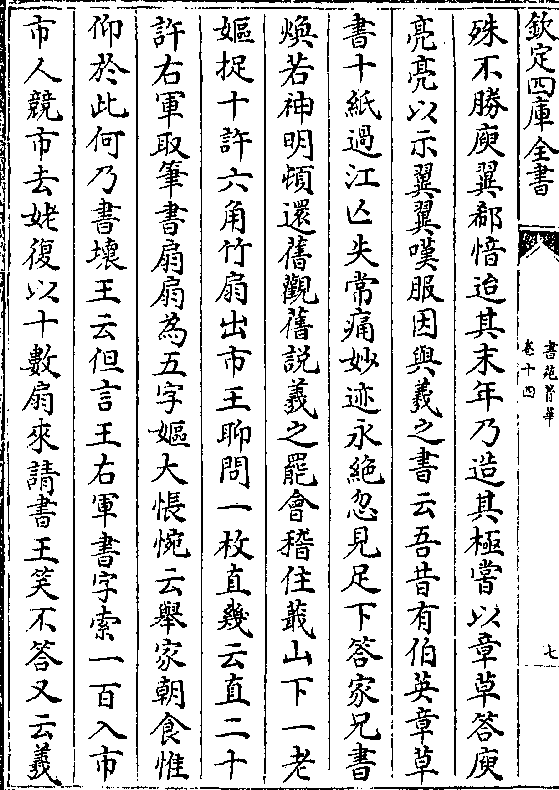 欽定四庫全書
書苑菁華
卷十四
七
殊不勝庾翼郗愔迨其末年乃造其極嘗以章草答庾
亮亮以示翼翼嘆服因與羲之書云吾昔有伯英章草
書十紙過江亾失常痛妙迹永絶忽見足下答家兄書
煥若神明頓還舊觀舊説羲之罷會稽住蕺山下一老
嫗捉十許六角竹扇出市王聊問一枚直幾云直二十
許右軍取筆書扇扇為五字嫗大悵惋云舉家朝食惟
仰於此何乃書壊王云但言王右軍書字索一百入市
市人競市去姥復以十數扇來請書王笑不答又云羲